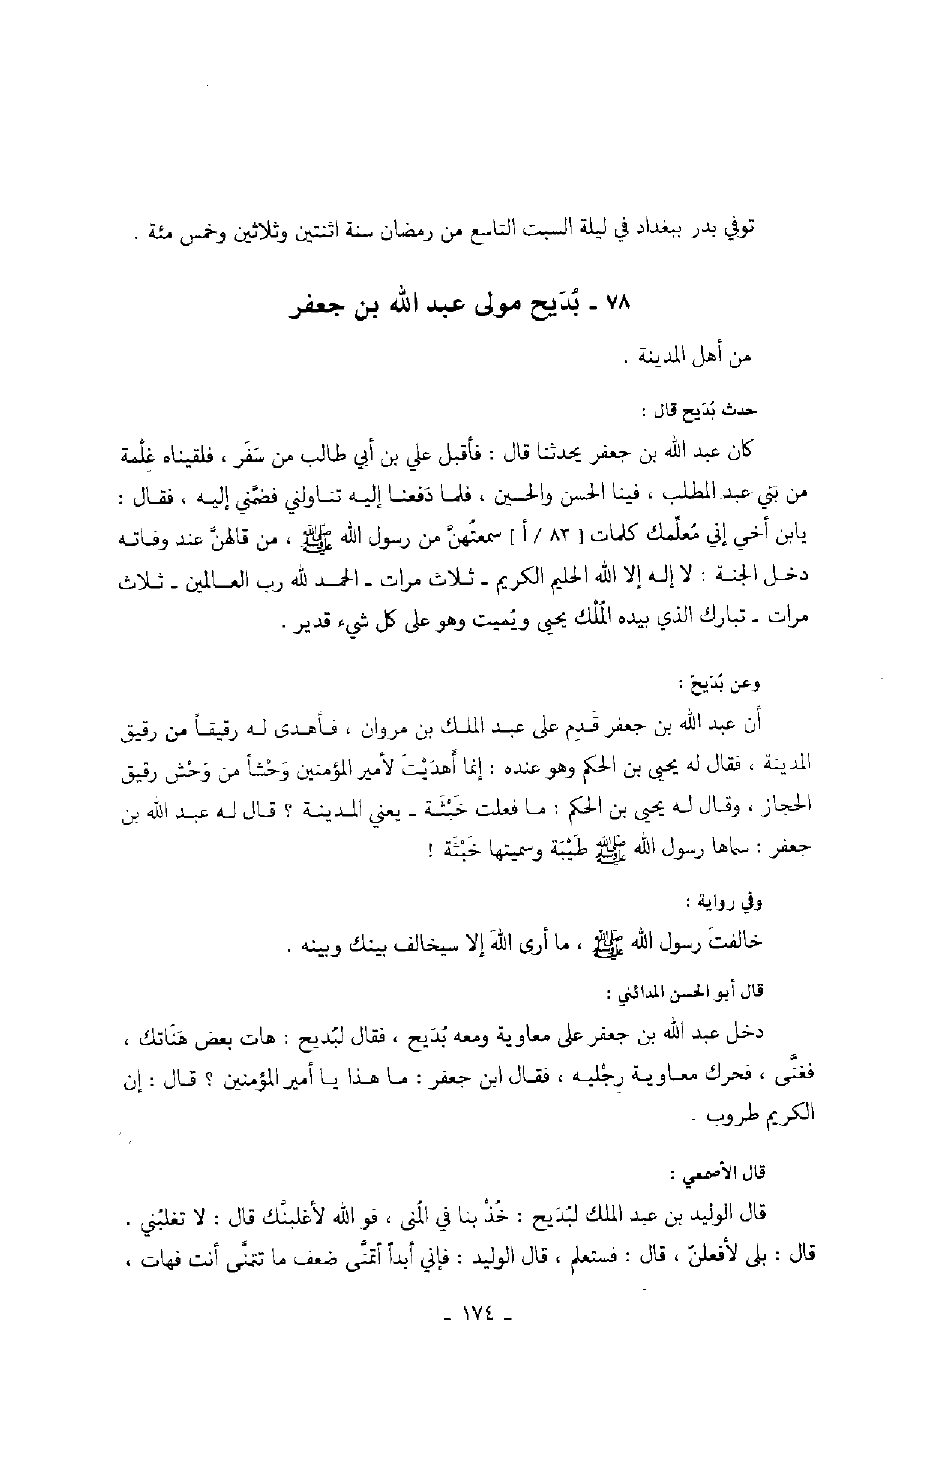 توفي بدر ببغداد في ليلة السبت التاسع من رمضان سنة اثنتين وثلاثين وخمس مئة .
٧٨ ـ بُدَيح مولى عبد الله بن جعفر
من أهل المدينة .
حدث بُدَيح قال :
كان عبد الله بن جعفر يحدثنا قال : فأقبل علي بن أبي طالب من سَفَر ، فلقيناه غِلْمة
من بَني عبد المطلب ، فينا الحسن والحسين ، فلما دَفعنا إليه تناولني فضمَّني إليه ، فقال :
يابن أخي إني مُعلّمك كلمات [ ٨٣ / أ ] سمعتُهنَّ من رسول الله ﷺ ، من قالهنَّ عند وفاته
دخل الجنة : لا إله إلا الله الحليم الكريم ـ ثلاث مرات ـ الحمد لله رب العالمين ـ ثلاث
مرات ـ تبارك الذي بيده المُلْك يحيى ويُميت وهو على كل شيء قدير .
وعن بُدَيحَ :
أن عبد الله بن جعفر قَدِم على عبد الملك بن مروان ، فأهدى له رقيقاً من رقيق
المدينة ، فقال له يحيى بن الحكم وهو عنده : إنما أَهدَيْتَ لأمير المؤمنين وَحْشاً من وَحْش رقيق
الحجاز ، وقال له يحيى بن الحكم : ما فعلت خَبْثَة ـ يعني المدينة ؟ قال له عبد الله بن
جعفر : سماها رسول الله ﷺ طَيْبَة وسميتها خَبْثَة !
وفي رواية :
خالفتَ رسول الله ﷺ ، ما أرى اللهَ إلا سيخالف بينك وبينه .
قال أبو الحسن المدائني :
دخل عبد الله بن جعفر على معاوية ومعه بُدَيح ، فقال لبُديح : هات بعض هَنَاتك ،
فغنَّى ، فحرك معاوية رِجْليه ، فقال ابن جعفر : ما هذا يا أمير المؤمنين ؟ قال : إن
الكريم طروب .
قال الأصمعي :
قال الوليد بن عبد الملك لبُدَيح : خُذْ بنا في المُنى ، فو الله لأغلبنَّك قال : لا تغلبُني .
قال : بلى لأفعلنّ ، قال : فستعلم ، قال الوليد : فإني أبداً أتمَنَّى ضعف ما تتمنَّى أنت فهات ،
ـ ١٧٤ ـ